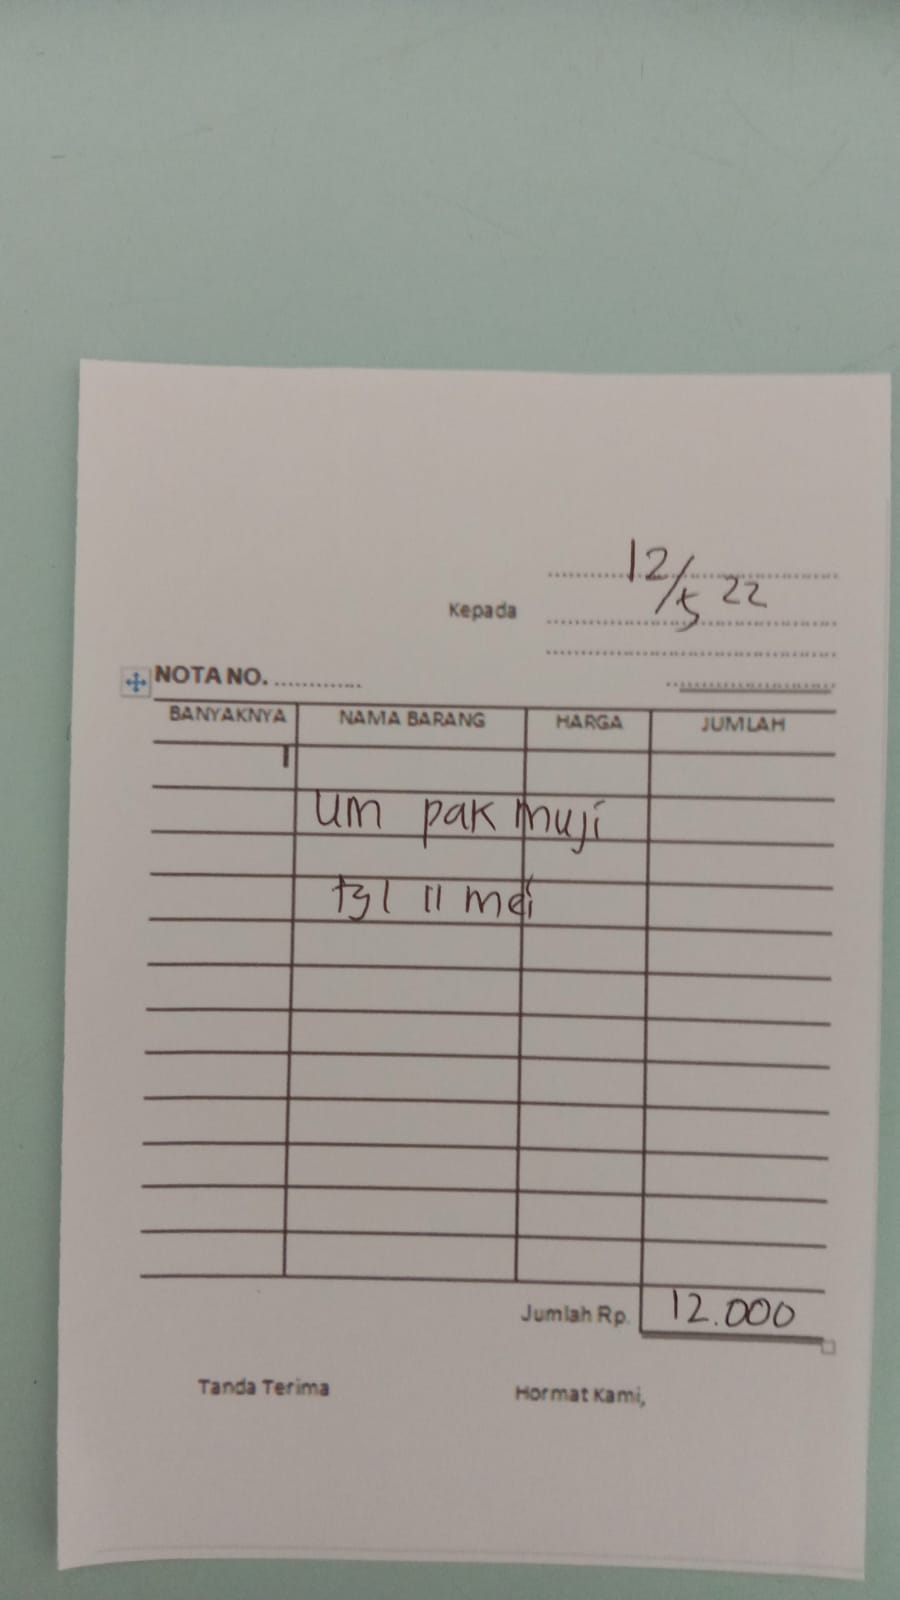 12/5 22
Kepada
NOTA NO. ............
BANYAKNYA NAMA BARANG HARGA JUMLAH
um pak muji
tgl 11 mei
Jumlah Rp. 12.000
Tanda Terima Hormat Kami,